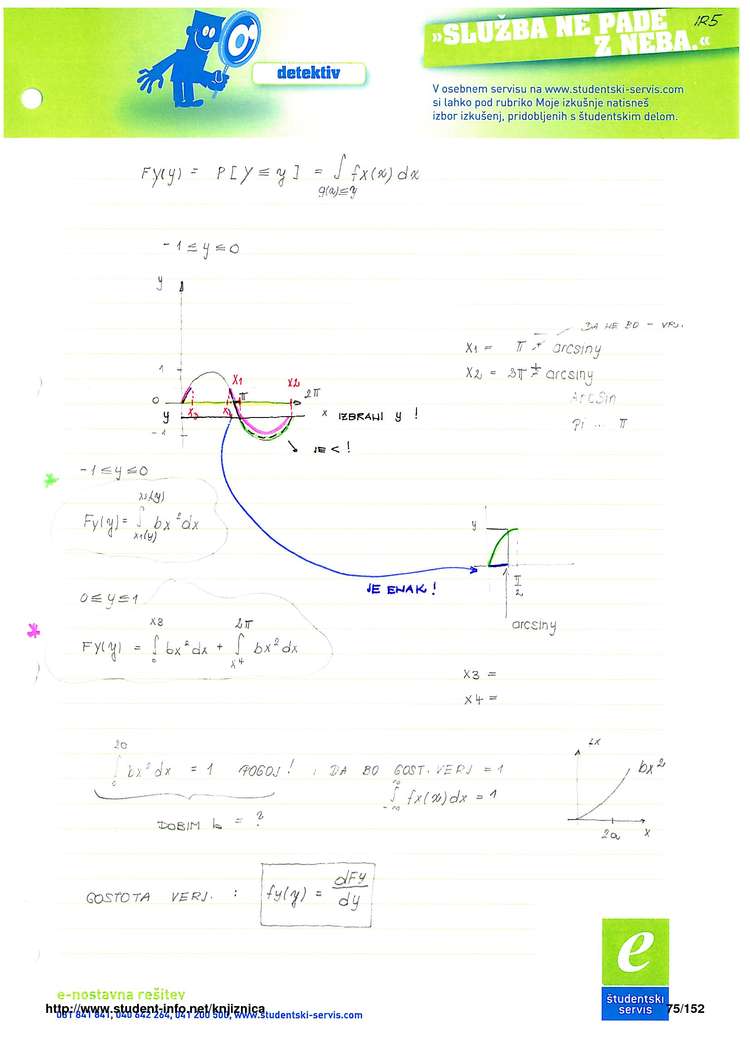 1R5
»SLUŽBA NE PADE
Z NEBA.«
detektiv
V osebnem servisu na www.studentski-servis.com
si lahko pod rubriko Moje izkušnje natisneš
izbor izkušenj, pridobljenih s študentskim delom.
Fy(y) = P[Y ≤ y] = ∫ fx(x) dx
g(x)≤y
-1 ≤ y ≤ 0
y
1
0
y
-1
x1
x2
π
2π
x3
x
x IZBRANI y !
JE < !
DA NE BO - VRJ.
x1 = π - arcsiny
x2 = 2π + arcsiny
ArcSin
Pi ... π
-1 ≤ y ≤ 0
x2(y)
Fy(y) = ∫ bx² dx
x1(y)
JE ENAK !
y
π
2
arcsiny
0 ≤ y ≤ 1
x3 2π
Fy(y) = ∫ bx² dx + ∫ bx² dx
0 x4
x3 =
x4 =
∫ bx² dx = 1 POGOJ ! , DA BO GOST. VERJ = 1
∫ fx(x) dx = 1
-∞
DOBIM b = ?
bx²
2a x
GOSTOTA VERJ. : fy(y) = dFy
dy
e-nostavna rešitev
http://www.student-info.net/knjiznica
061 841 841, 040 642 264, 041 200 500, www.studentski-servis.com
e
študentski
servis
75/152